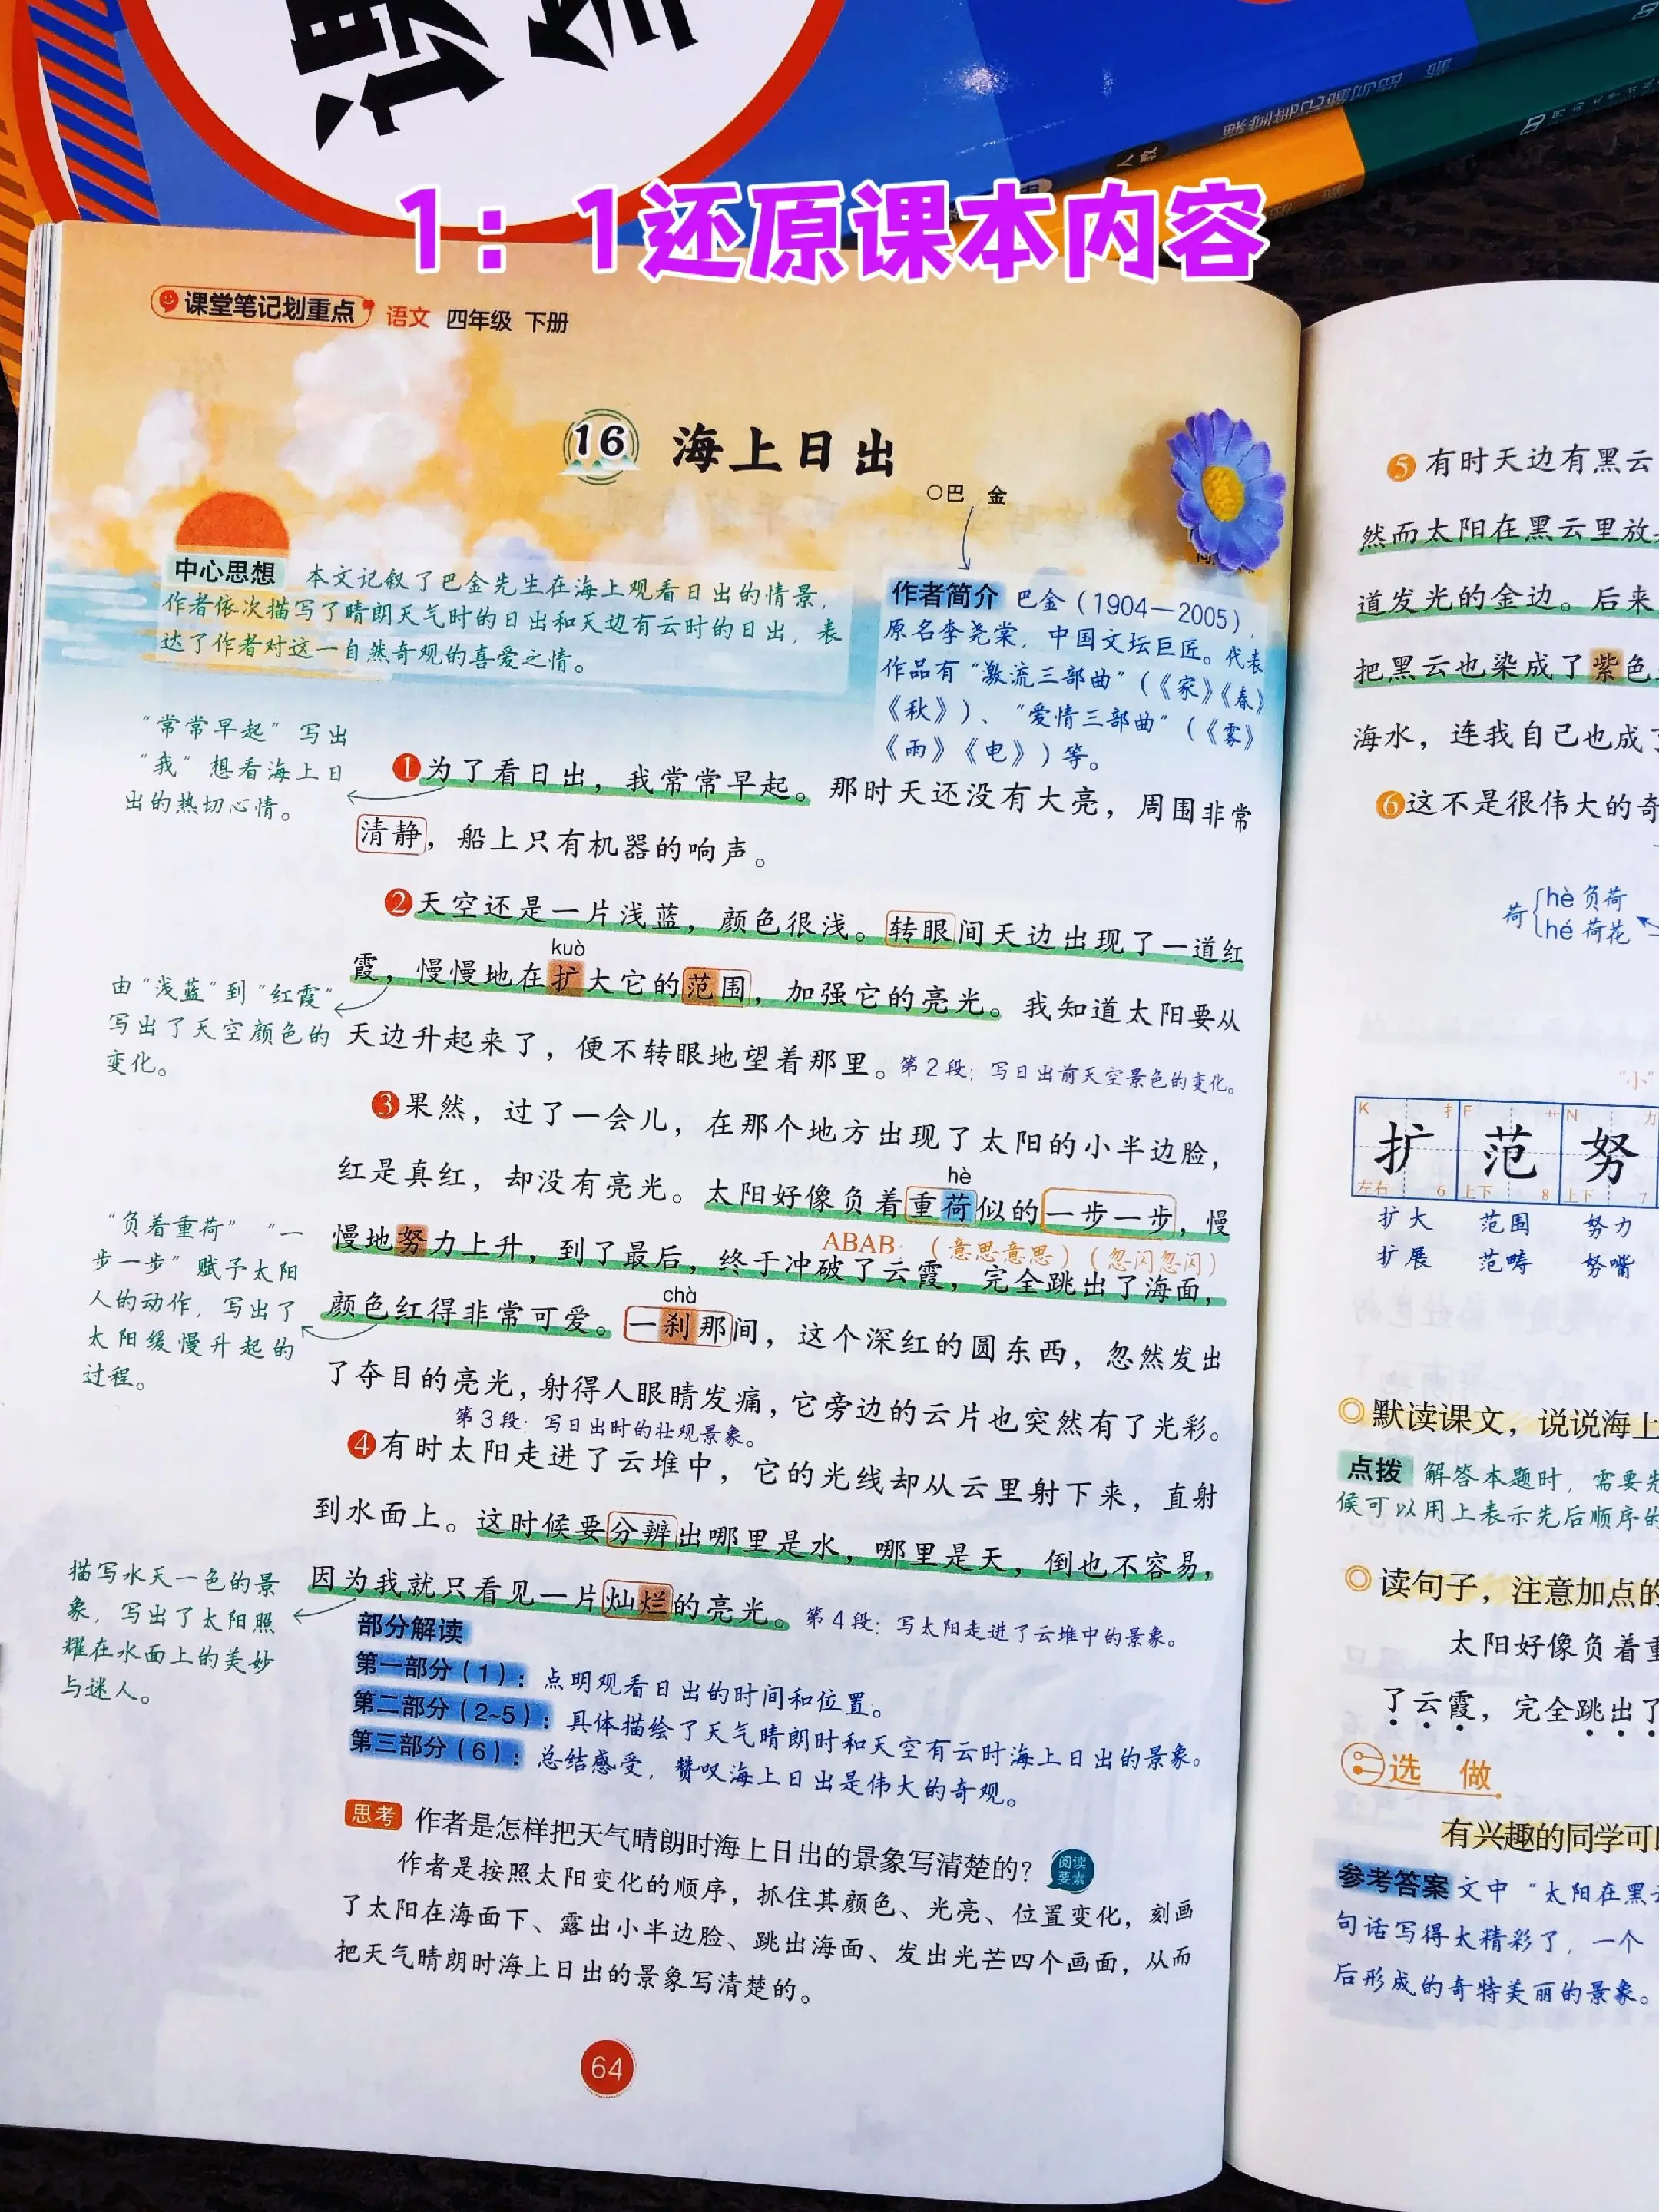 1：1还原课本内容
课堂笔记划重点 语文 四年级 下册
16 海上日出
○巴 金
中心思想 本文记叙了巴金先生在海上观看日出的情景，
作者依次描写了晴朗天气时的日出和天边有云时的日出，表
达了作者对这一自然奇观的喜爱之情。
作者简介 巴金（1904—2005），
原名李尧棠，中国文坛巨匠。代表
作品有“激流三部曲”（《家》《春》
《秋》）、“爱情三部曲”（《雾》
《雨》《电》）等。
“常常早起”写出
“我”想看海上日
出的热切心情。
❶为了看日出，我常常早起。那时天还没有大亮，周围非常
清静，船上只有机器的响声。
❷天空还是一片浅蓝，颜色很浅。转眼间天边出现了一道红
kuò
霞，慢慢地在扩大它的范围，加强它的亮光。我知道太阳要从
天边升起来了，便不转眼地望着那里。第2段：写日出前天空景色的变化。
由“浅蓝”到“红霞”
写出了天空颜色的
变化。
❸果然，过了一会儿，在那个地方出现了太阳的小半边脸，
hè
红是真红，却没有亮光。太阳好像负着重荷似的一步一步，慢
ABAB：（意思意思）（忽闪忽闪）
慢地努力上升，到了最后，终于冲破了云霞，完全跳出了海面，
chà
颜色红得非常可爱。一刹那间，这个深红的圆东西，忽然发出
了夺目的亮光，射得人眼睛发痛，它旁边的云片也突然有了光彩。
第3段：写日出时的壮观景象。
“负着重荷”“一
步一步”赋予太阳
人的动作，写出了
太阳缓慢升起的
过程。
❹有时太阳走进了云堆中，它的光线却从云里射下来，直射
到水面上。这时候要分辨出哪里是水，哪里是天，倒也不容易，
因为我就只看见一片灿烂的亮光。第4段：写太阳走进了云堆中的景象。
描写水天一色的景
象，写出了太阳照
耀在水面上的美妙
与迷人。
部分解读
第一部分（1）：点明观看日出的时间和位置。
第二部分（2~5）：具体描绘了天气晴朗时和天空有云时海上日出的景象。
第三部分（6）：总结感受，赞叹海上日出是伟大的奇观。
思考 作者是怎样把天气晴朗时海上日出的景象写清楚的？ 阅读要素
作者是按照太阳变化的顺序，抓住其颜色、光亮、位置变化，刻画
了太阳在海面下、露出小半边脸、跳出海面、发出光芒四个画面，从而
把天气晴朗时海上日出的景象写清楚的。
64
❺有时天边有黑云
然而太阳在黑云里放
道发光的金边。后来
把黑云也染成了紫色
海水，连我自己也成了
❻这不是很伟大的奇
荷 hè 负荷
hé 荷花
“小”
K 扌 F 艹 N 力
扩 范 努
左右 6 上下 8 上下 7
扩大 范围 努力
扩展 范畴 努嘴
◎默读课文，说说海上
点拨 解答本题时，需要先
候可以用上表示先后顺序的
◎读句子，注意加点的
太阳好像负着重
了云霞，完全跳出了
选 做
有兴趣的同学可以
参考答案 文中“太阳在黑云
句话写得太精彩了，一个
后形成的奇特美丽的景象。